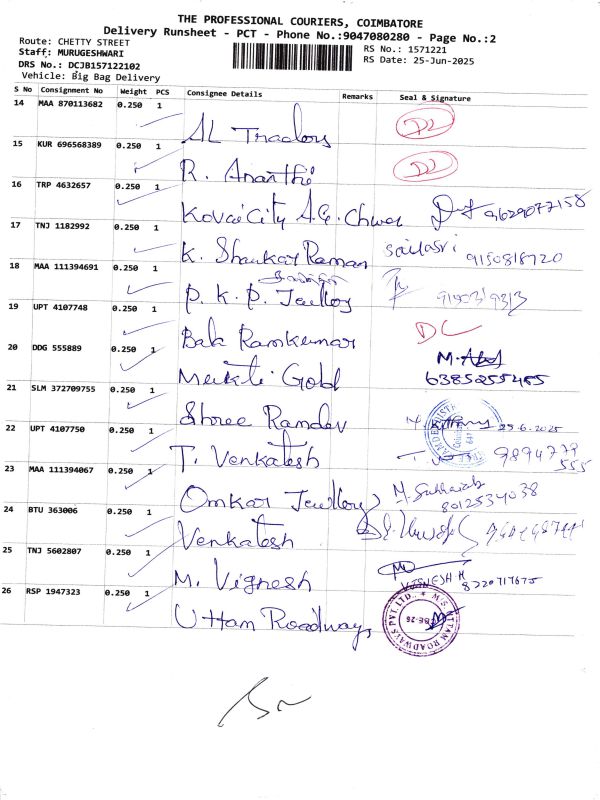 THE PROFESSIONAL COURIERS, COIMBATORE
Delivery Runsheet - PCT - Phone No.:9047080280 - Page No.:2
Route: CHETTY STREET
RS No.: 1571221
Staff: MURUGESHWARI
RS Date: 25-Jun-2025
DRS No.: DCJB157122102
Vehicle: Big Bag Delivery
S No Consignment No Weight PCS Consignee Details Remarks Seal & Signature
14 MAA 870113682 0.250 1
AL Tradors
15 KUR 696568389 0.250 1
R. Ananthi
16 TRP 4632657 0.250 1
KovaiCity A.G. 9629077158
17 TNJ 1182992 0.250 1
K. Shankar Raman Sailasri 9150818720
18 MAA 111394691 0.250 1
P. K. P. Jewllory
19 UPT 4107748 0.250 1
Bala Ramkumar DC
20 DDG 555889 0.250 1
Mukti Gold 6385255485
21 SLM 372709755 0.250 1
Shree Ramdev 25-6-2025
22 UPT 4107750 0.250 1
T. Venkatesh 9894779
555
23 MAA 111394067 0.250 1
Omkar Jewllory 8012534038
24 BTU 363006 0.250 1
Venkatesh
25 TNJ 5602807 0.250 1
M. Vignesh VIGNESH M 8220717675
26 RSP 1947323 0.250 1
Uttam Roadways
M.S. UTTAM ROADWAYS PVT. LTD. CBE-26